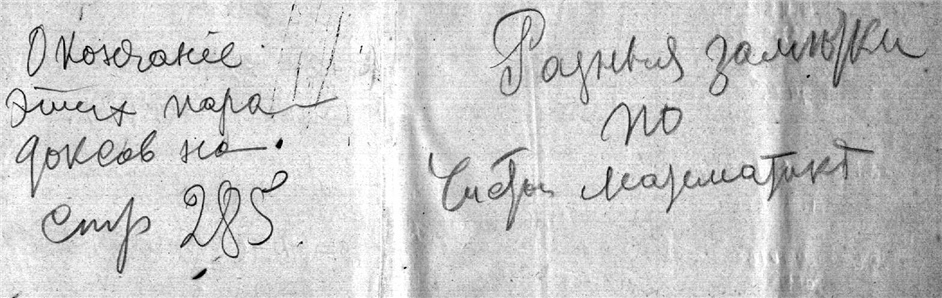 Окончаніе
этих пара
доксов на
стр 285.
Разныя замѣтки
по
Чистой математикѣ